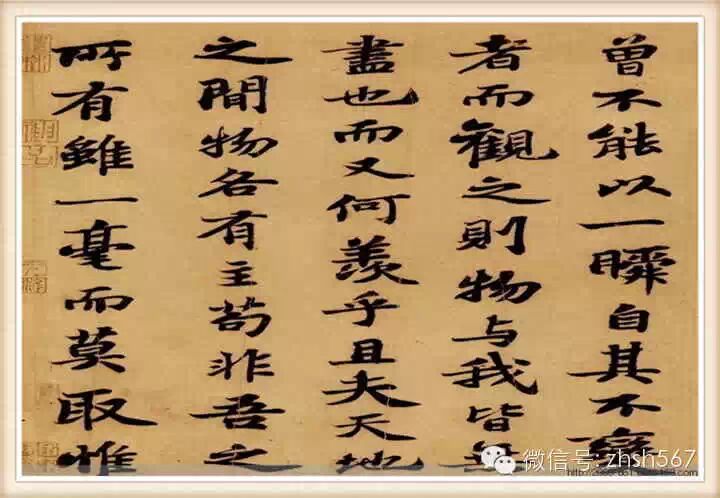 曾不能以一瞬自其不變
者而觀之則物与我皆無
盡也而又何羨乎且夫天地
之間物各有主苟非吾之
所有雖一毫而莫取惟
微信号: zhsh567